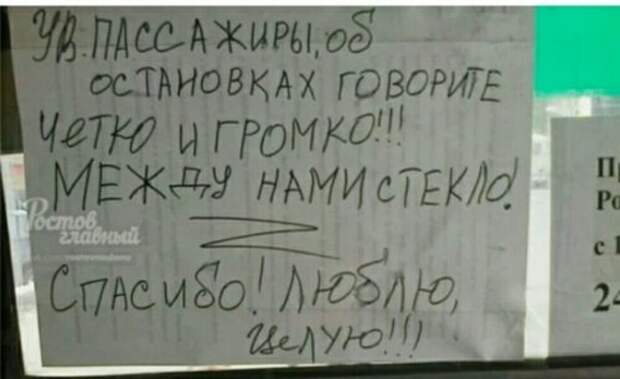 УВ. ПАССАЖИРЫ, об
ОСТАНОВКАХ ГОВОРИТЕ
ЧЕТКО И ГРОМКО!!!
МЕЖДУ НАМИ СТЕКЛО!
Ростов
главный
СПАСИБО! ЛЮБЛЮ,
ЦЕЛУЮ!!!
с